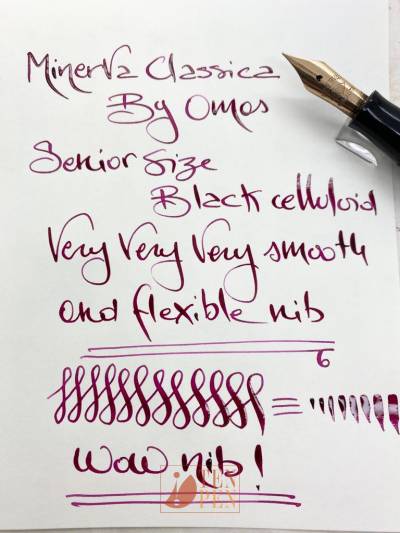 Minerva Classica
By Omas
Senior Size
Black celluloid
Very Very Very smooth
and flexible nib
6
Wow nib!
PEN
PEN